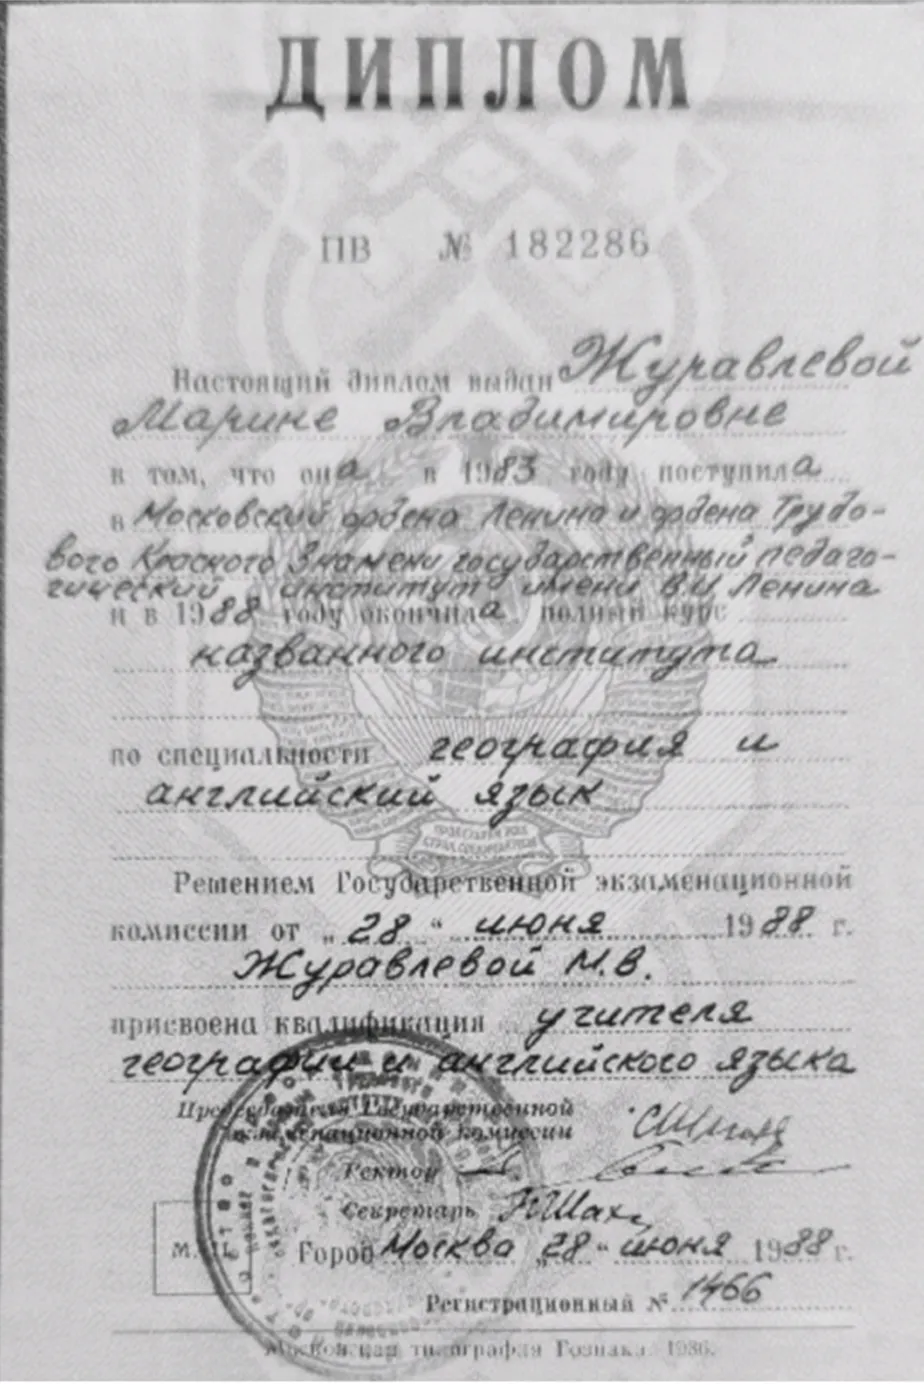 ДИПЛОМ
ПВ № 182286
Настоящий диплом выдан Журавлевой
Марине Владимировне
в том, что она в 1983 году поступила
в Московский ордена Ленина и ордена Трудо-
вого Красного Знамени государственный педаго-
гический институт имени В.И. Ленина
и в 1988 году окончила полный курс
названного института
по специальности география и
английский язык
Решением Государственной экзаменационной
комиссии от „28“ июня 1988 г.
Журавлевой М.В.
присвоена квалификация учителя
географии и английского языка
Председатель Государственной
экзаменационной комиссии
Ректор
Секретарь
М.П.
Город Москва „28“ июня 1988 г.
Регистрационный № 1466
Московская типография Гознака. 1986.